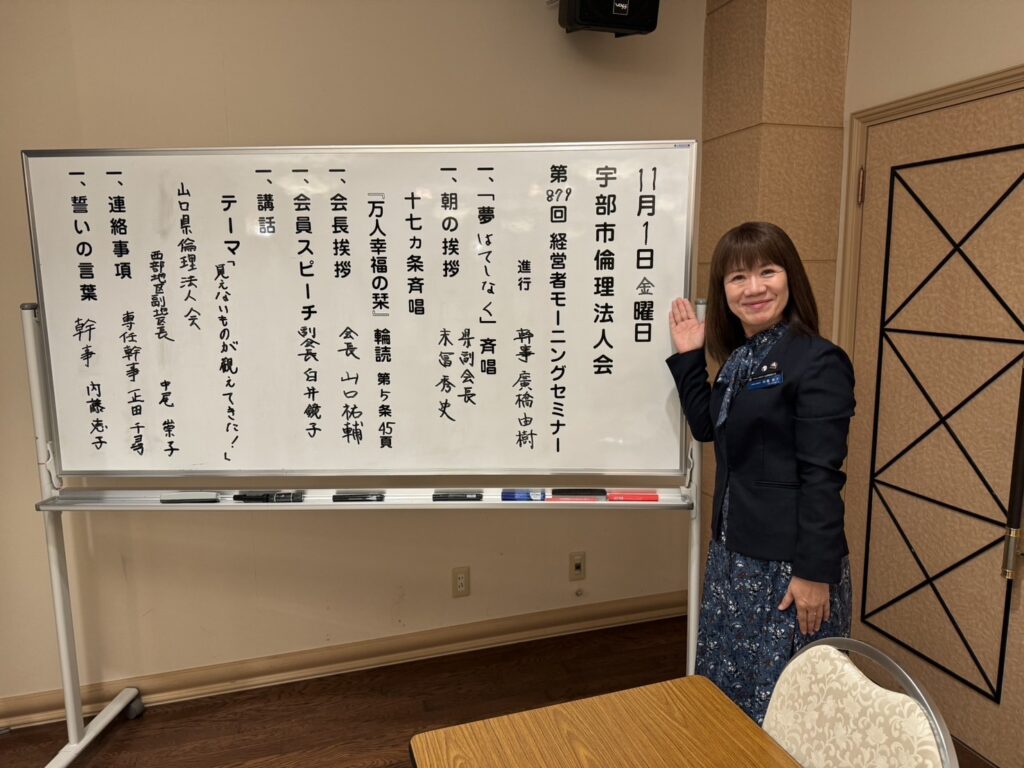 11月1日 金曜日
宇部市倫理法人会
第879回 経営者モーニングセミナー
進行 幹事 廣橋由樹
一、「夢はてしなく」斉唱
県副会長
一、朝の挨拶 末冨秀史
十七カ条斉唱
『万人幸福の栞』輪読 第15条 45頁
一、会長挨拶 会長 山口祐輔
一、会員スピーチ 副会長 臼井鏡子
一、講話
テーマ「見えないものが観えてきた!」
山口県倫理法人会
西部地区副地区長 中尾 榮子
一、連絡事項 専任幹事 正田千尋
一、誓いの言葉 幹事 内藤志子